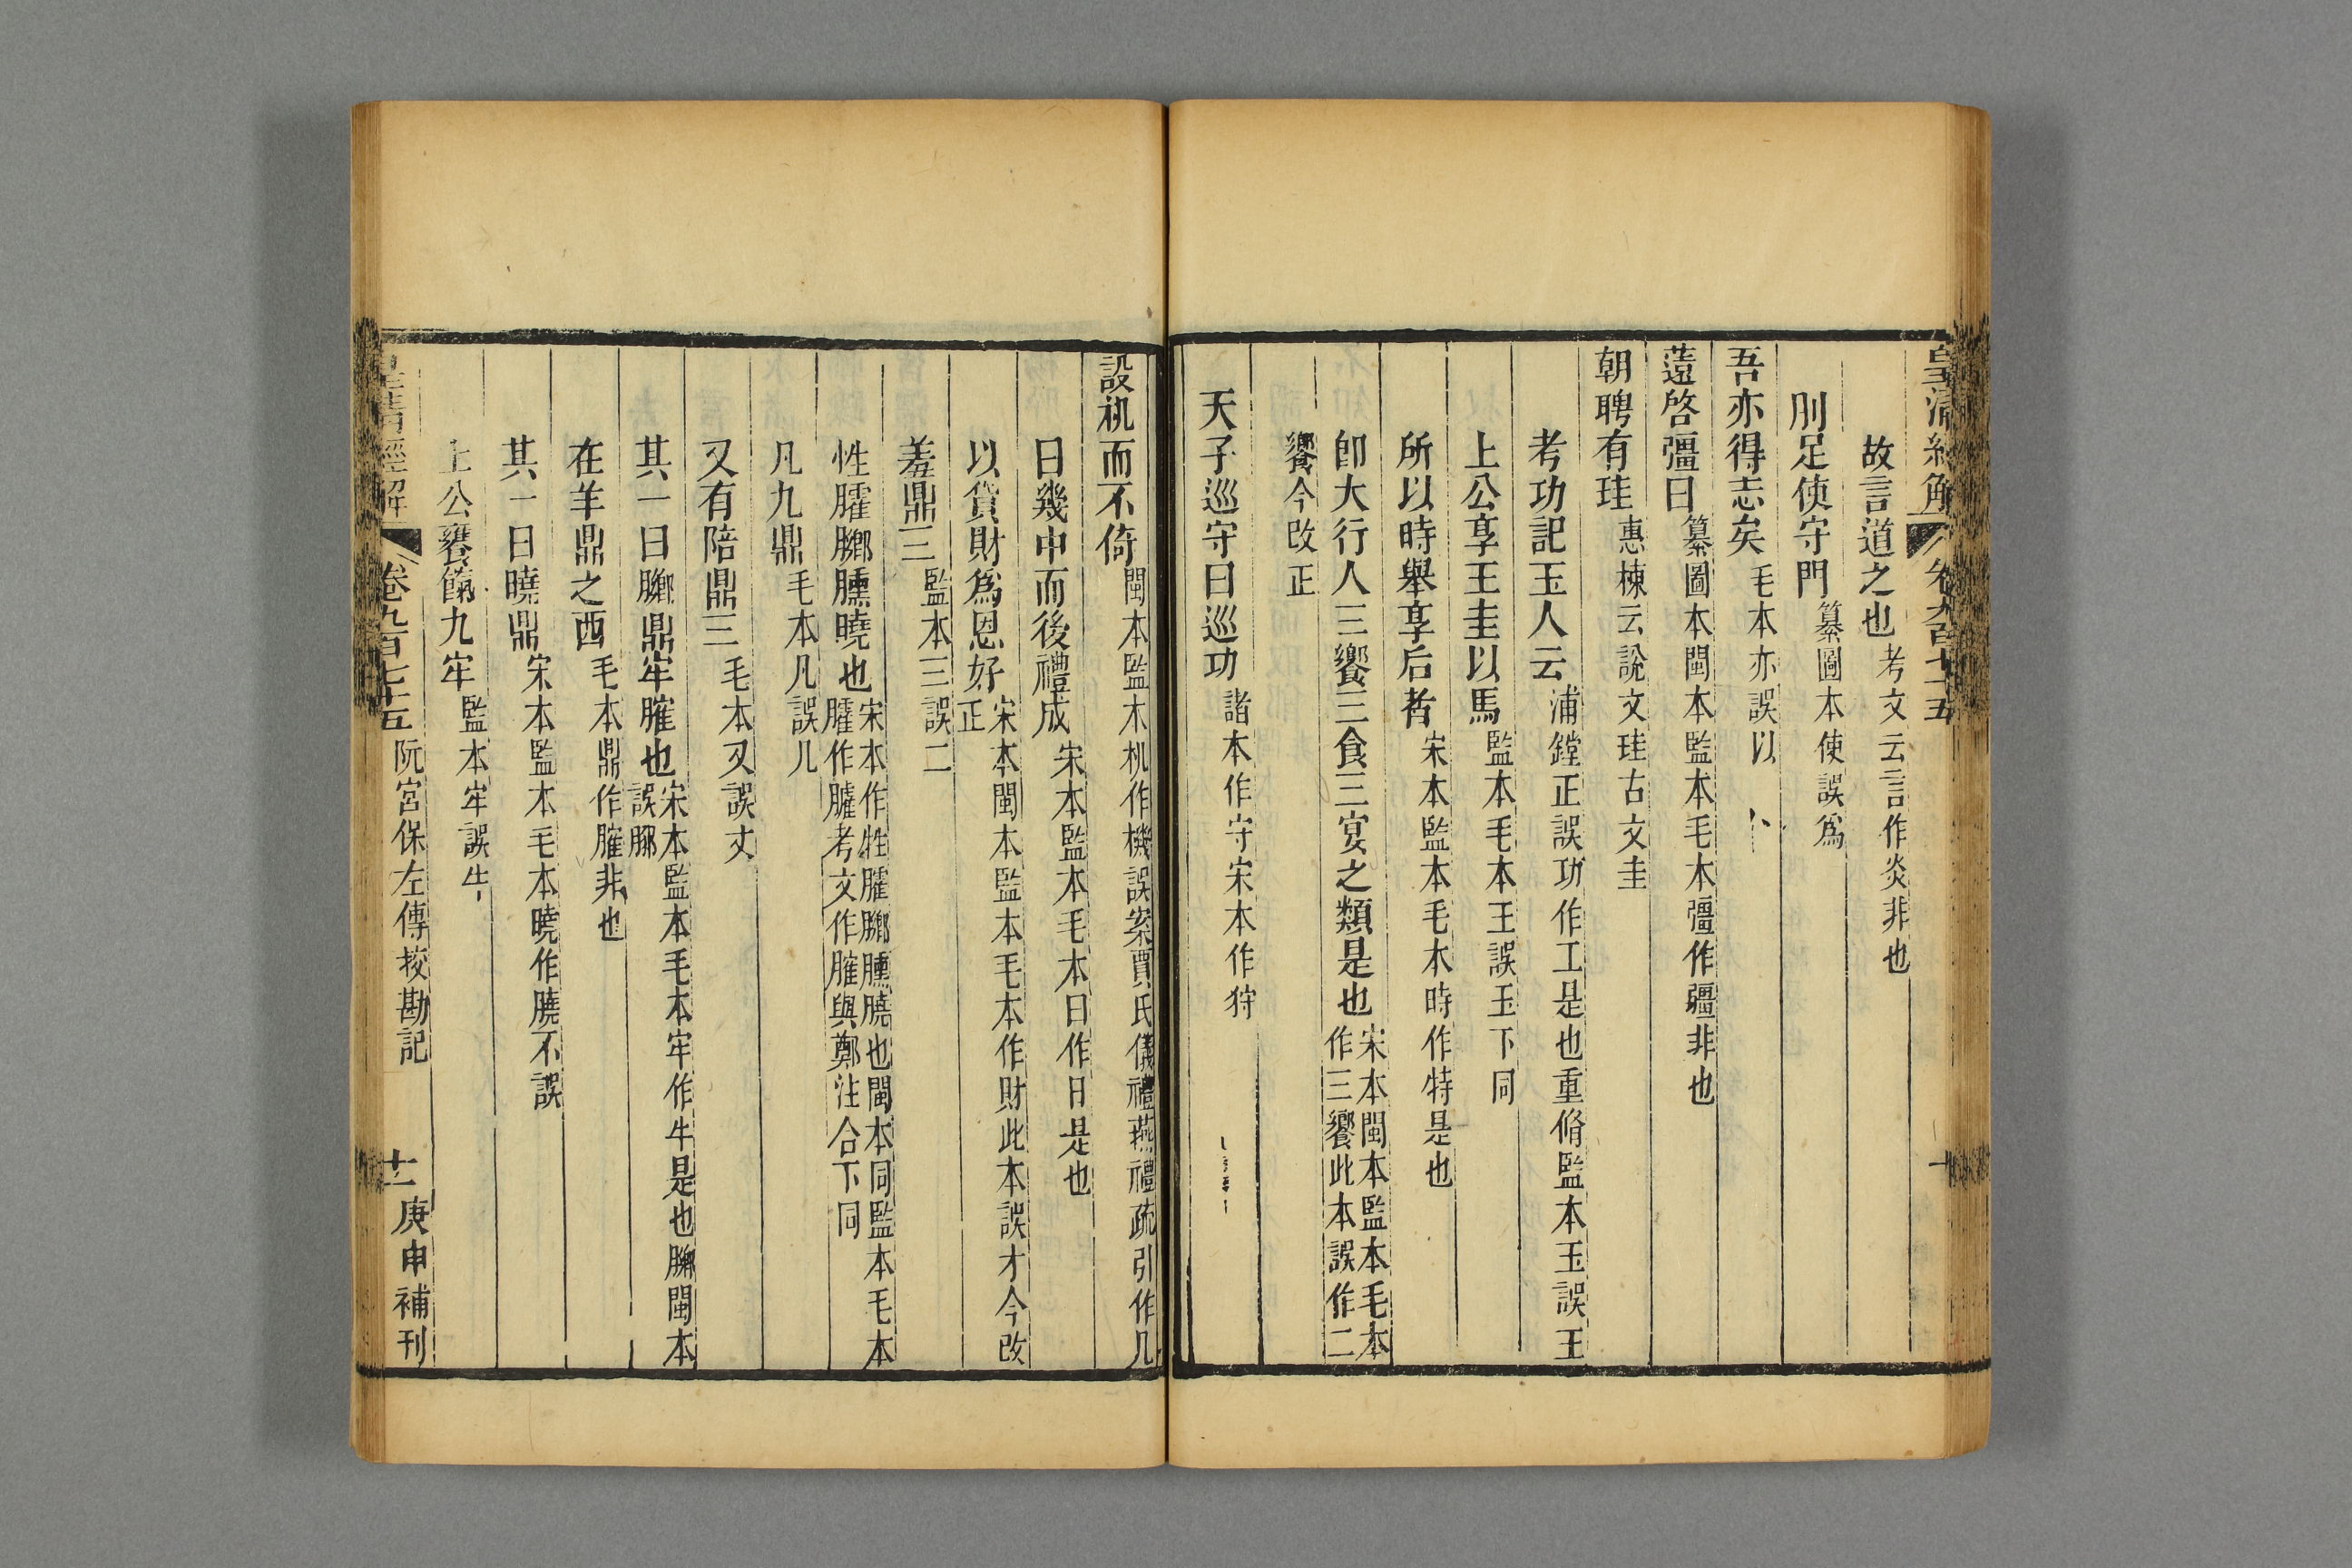 皇清經解 卷九百七十五 十
故言道之也考文云言作炎非也
刖足使守門纂圖本使誤爲
吾亦得志矣毛本亦誤以
薳啓彊曰纂圖本閩本監本毛本彊作疆非也
朝聘有珪惠棟云說文珪古文圭
考功記玉人云浦鏜正誤功作工是也重脩監本玉誤王
上公享王圭以馬監本毛本王誤玉下同
所以時舉享后者宋本監本毛本時作特是也
卽大行人三饗三食三宴之類是也宋本閩本監本毛本作三饗此本誤作二
饗今改正
天子巡守曰巡功諸本作守宋本作狩
設机而不倚閩本監本机作機誤案賈氏儀禮燕禮疏引作几
日幾中而後禮成宋本監本毛本日作日是也
以貨財爲恩好宋本閩本監本毛本作財此本誤才今改正
羞鼎三監本三誤二
性臛膷臐曉也宋本作牲臛膷臐膮也閩本同監本毛本臛作臛考文作臛與鄭注合下同
凡九鼎毛本凡誤几
又有陪鼎三毛本又誤丈
其一曰膷鼎牢臛也宋本監本毛本牢作牛是也膷閩本誤膷
在羊鼎之西毛本鼎作臛非也
其一曰曉鼎宋本監本毛本曉作膮不誤
上公饔餼九牢監本牢誤牛
皇清經解 卷九百七十五 阮宮保左傳挍勘記 十一 庚申補刊